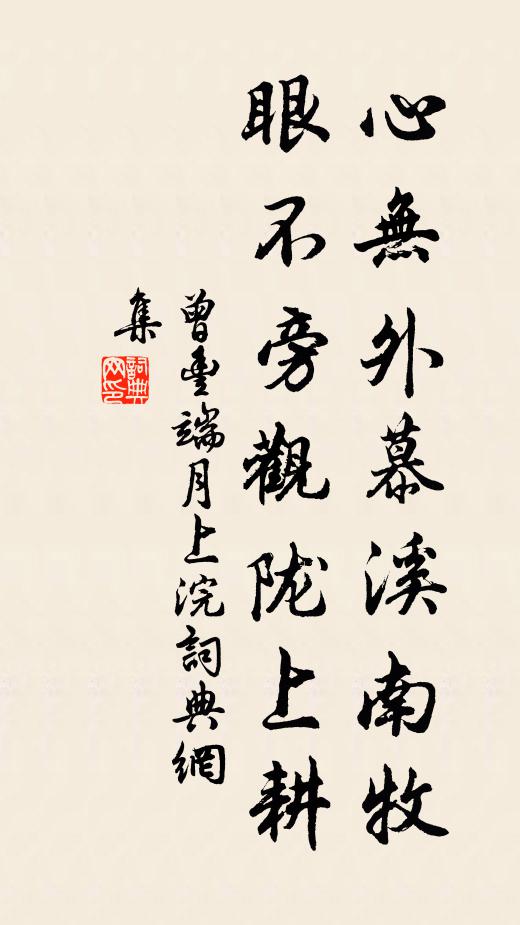 心無外慕溪南牧
眼不旁觀陇上耕
曾豊端月上浣詞典網
集
詞典
网印